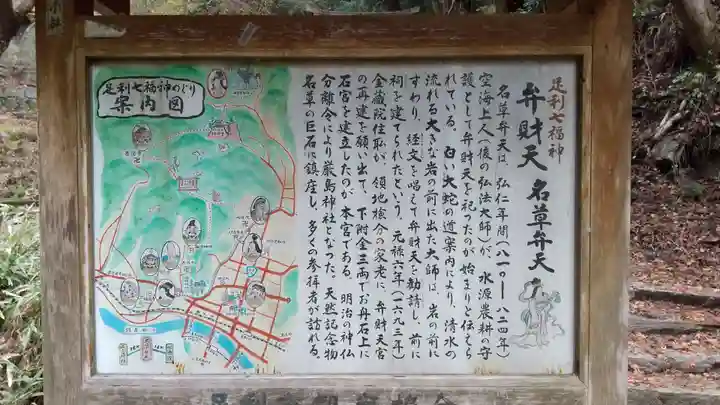 足利七福神
弁財天 名草弁天
名草弁天は、弘仁年間(八一〇〜八二四年)
空海上人(後の弘法大師)が、水源農耕の守
護として弁財天を祀ったのが始まりと伝えら
れている。白い大蛇の道案内により、清水の
流れる大きな岩の前に出た大師は、岩の前に
すわり、経文を唱えて弁財天を勧請し、前に
祠を建てられたという。元禄六年(一六九三年)
金蔵院住職が、領地検分の家老に、弁財天宮
の再建を願い出て、下附金三両でお丹石上に
石宮を建立したのが、本宮である。明治の神仏
分離令により厳島神社となった。天然記念物
名草の巨石に鎮座し、多くの参拝者が訪れる。
足利七福神めぐり
案内図